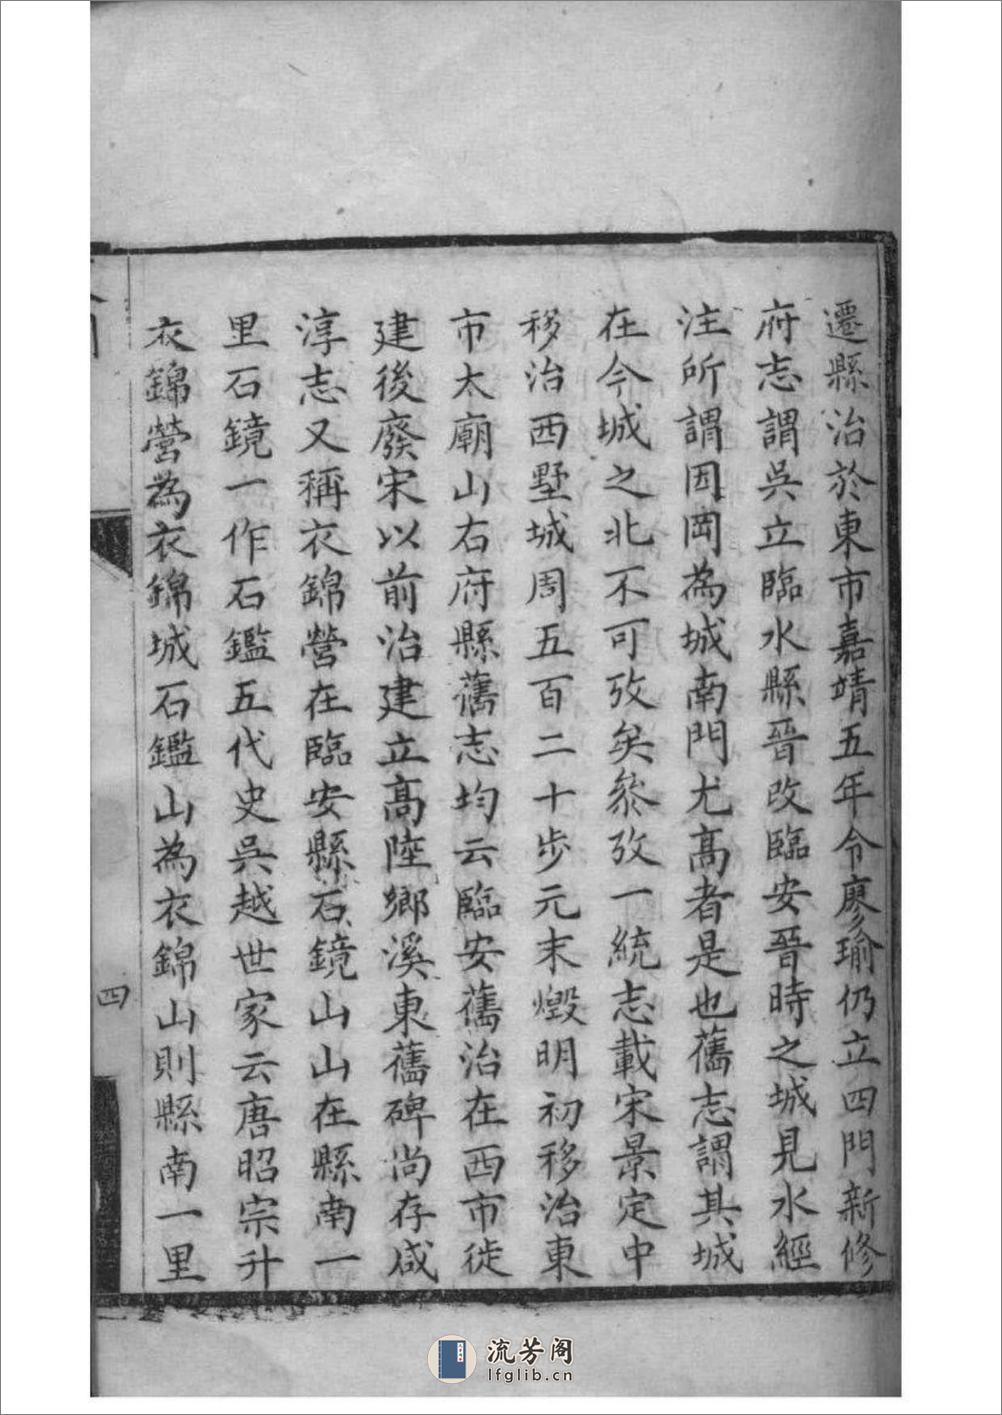 遷縣治於東市嘉靖五年令廖瑜仍立四門新修
府志謂吳立臨水縣晉改臨安晉時之城見水經
注所謂因岡為城南門尤高者是也舊志謂其城
在今城之北不可攷矣叅攷一統志載宋景定中
移治西墅城周五百二十步元末燬明初移治東
市太廟山右府縣舊志均云臨安舊治在西市徙
建後廢宋以前治建立高陸鄉溪東舊碑尚存咸
淳志又稱衣錦營在臨安縣石鏡山山在縣南一
里石鏡一作石鑑五代史吳越世家云唐昭宗升
衣錦營為衣錦城石鑑山為衣錦山則縣南一里
四
流芳阁
lfglib.cn